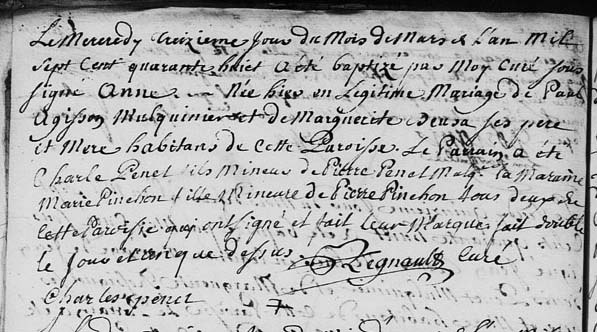 Le Mercredy treizieme Jour du Mois de Mars de L'an Mil
Sept Cent quarante huiet a été baptizé par Moy Curé sous
signé Anne Née hier en Legitime Mariage de Paul
Agisson Mulquinier et de Marguerite ses père
et Mere habitans de Cette Paroisse. Le Parrain a été
Charle Penet fils Mineur de Pierre Penet Malq. la Maraine
Marie Pinchon fille Mineure de Pierre Pinchon tous deux de
Cette Paroisse qui ont signé et fait leur Marque fait double
le Jour et an que dessus Regnault Curé
Charles penet +